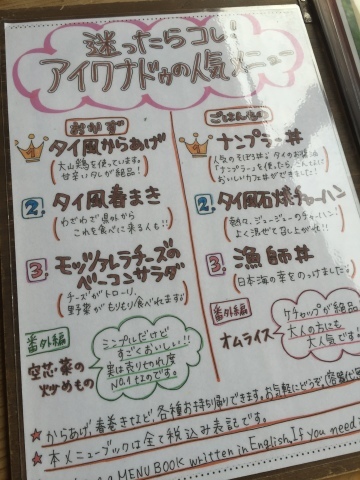 迷ったらコレ!
アイワナドゥの人気メニュー
おかず
タイ風からあげ
(大山鶏を使っています。
甘辛いタレが絶品!)
2. タイ風春まき
(わざわざ県外から
これを食べに来る人も!!)
3. モッツァレラチーズの
ベーコンサラダ
(チーズがトローリ、
野菜がもりもり食べれます。)
番外編
空芯菜の
炒めもの
シンプルだけど
すごくおいしい!!
実は売り切れ度
NO.1だったりです。
ごはんもの
ナンプラー丼
(人気のそぼろ丼。タイのお醤油
「ナンプラー」を使ったら、こんなに
おいしいカフェ丼ができました!)
2. タイ風石焼チャーハン
(熱々、ジュージューのチャーハン!
よく混ぜて召し上がれ!!)
3. 漁師丼
(日本海の幸をのっけました。)
番外編
オムライス
ケチャップが絶品
大人の方にも
大人気です。
★からあげ、春巻きなど、各種お持ち帰りできます。お気軽にどうぞ。(容器代
★本メニューブックは全て税込み表記です。
MENU BOOK written in English, If you need i